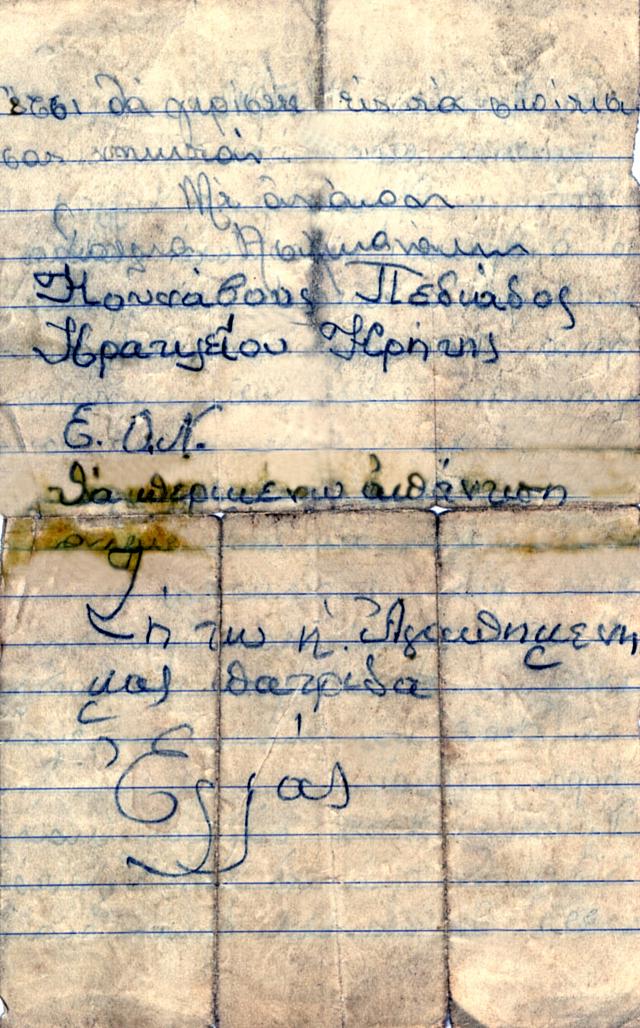 ἔτσι θά γυρίσετε εἰς τά σπίτια
σας νικηταί
Μέ ἀγάπη
Κουνάβους Πεδιάδος
Ηρακλείου Κρήτης
Ε. Ο. Ν.
θά περιμενω ἀπάντηση
Ζή τω ή Ἀγαπημενη
μας πατρίδα
Ἑλλάς